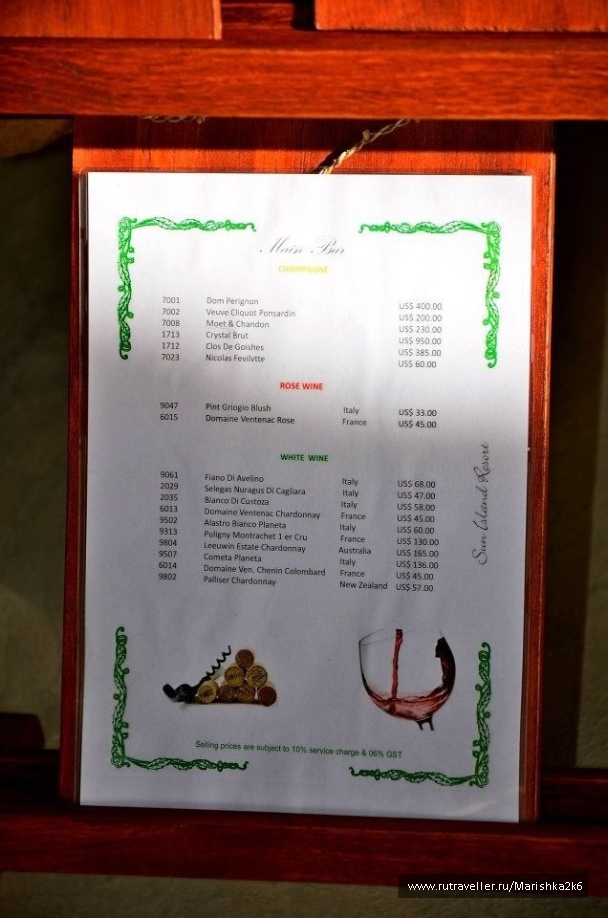 Main Bar
CHAMPAGNE
7001 Dom Perignon US$ 400.00
7002 Veuve Cliquot Ponsardin US$ 200.00
7008 Moet & Chandon US$ 230.00
1713 Crystal Brut US$ 950.00
1712 Clos De Goishes US$ 385.00
7023 Nicolas Fevilvtte US$ 60.00
ROSE WINE
9047 Pint Griogio Blush Italy US$ 33.00
6015 Domaine Ventenac Rose France US$ 45.00
WHITE WINE
9061 Fiano Di Avelino Italy US$ 68.00
2029 Selegas Nuragus Di Cagliara Italy US$ 47.00
2035 Bianco Di Custoza Italy US$ 58.00
6013 Domaine Ventenac Chardonnay France US$ 45.00
9502 Alastro Bianco Planeta Italy US$ 60.00
9313 Puligny Montrachet 1 er Cru France US$ 130.00
9804 Leeuwin Estate Chardonnay Australia US$ 165.00
9507 Cometa Planeta Italy US$ 136.00
6014 Domaine Ven. Chenin Colombard France US$ 45.00
9802 Palliser Chardonnay New Zealand US$ 57.00
Sun Island Resort
Selling prices are subject to 10% service charge & 06% GST
www.rutraveller.ru/Marishka2k6